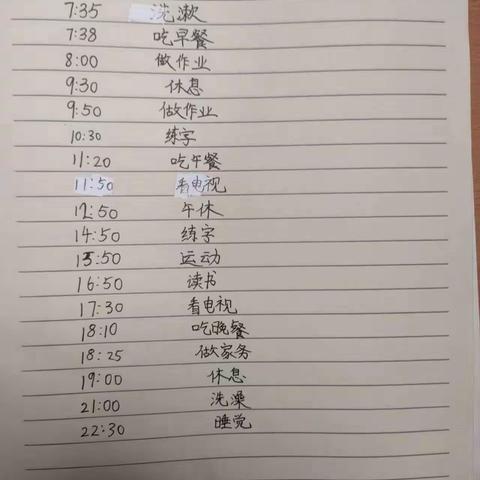 7:35 洗漱
7:38 吃早餐
8:00 做作业
9:30 休息
9:50 做作业
10:30 练字
11:20 吃午餐
11:50 看电视
12:50 午休
14:50 练字
15:50 运动
16:50 读书
17:30 看电视
18:10 吃晚餐
18:25 做家务
19:00 休息
21:00 洗澡
22:30 睡觉